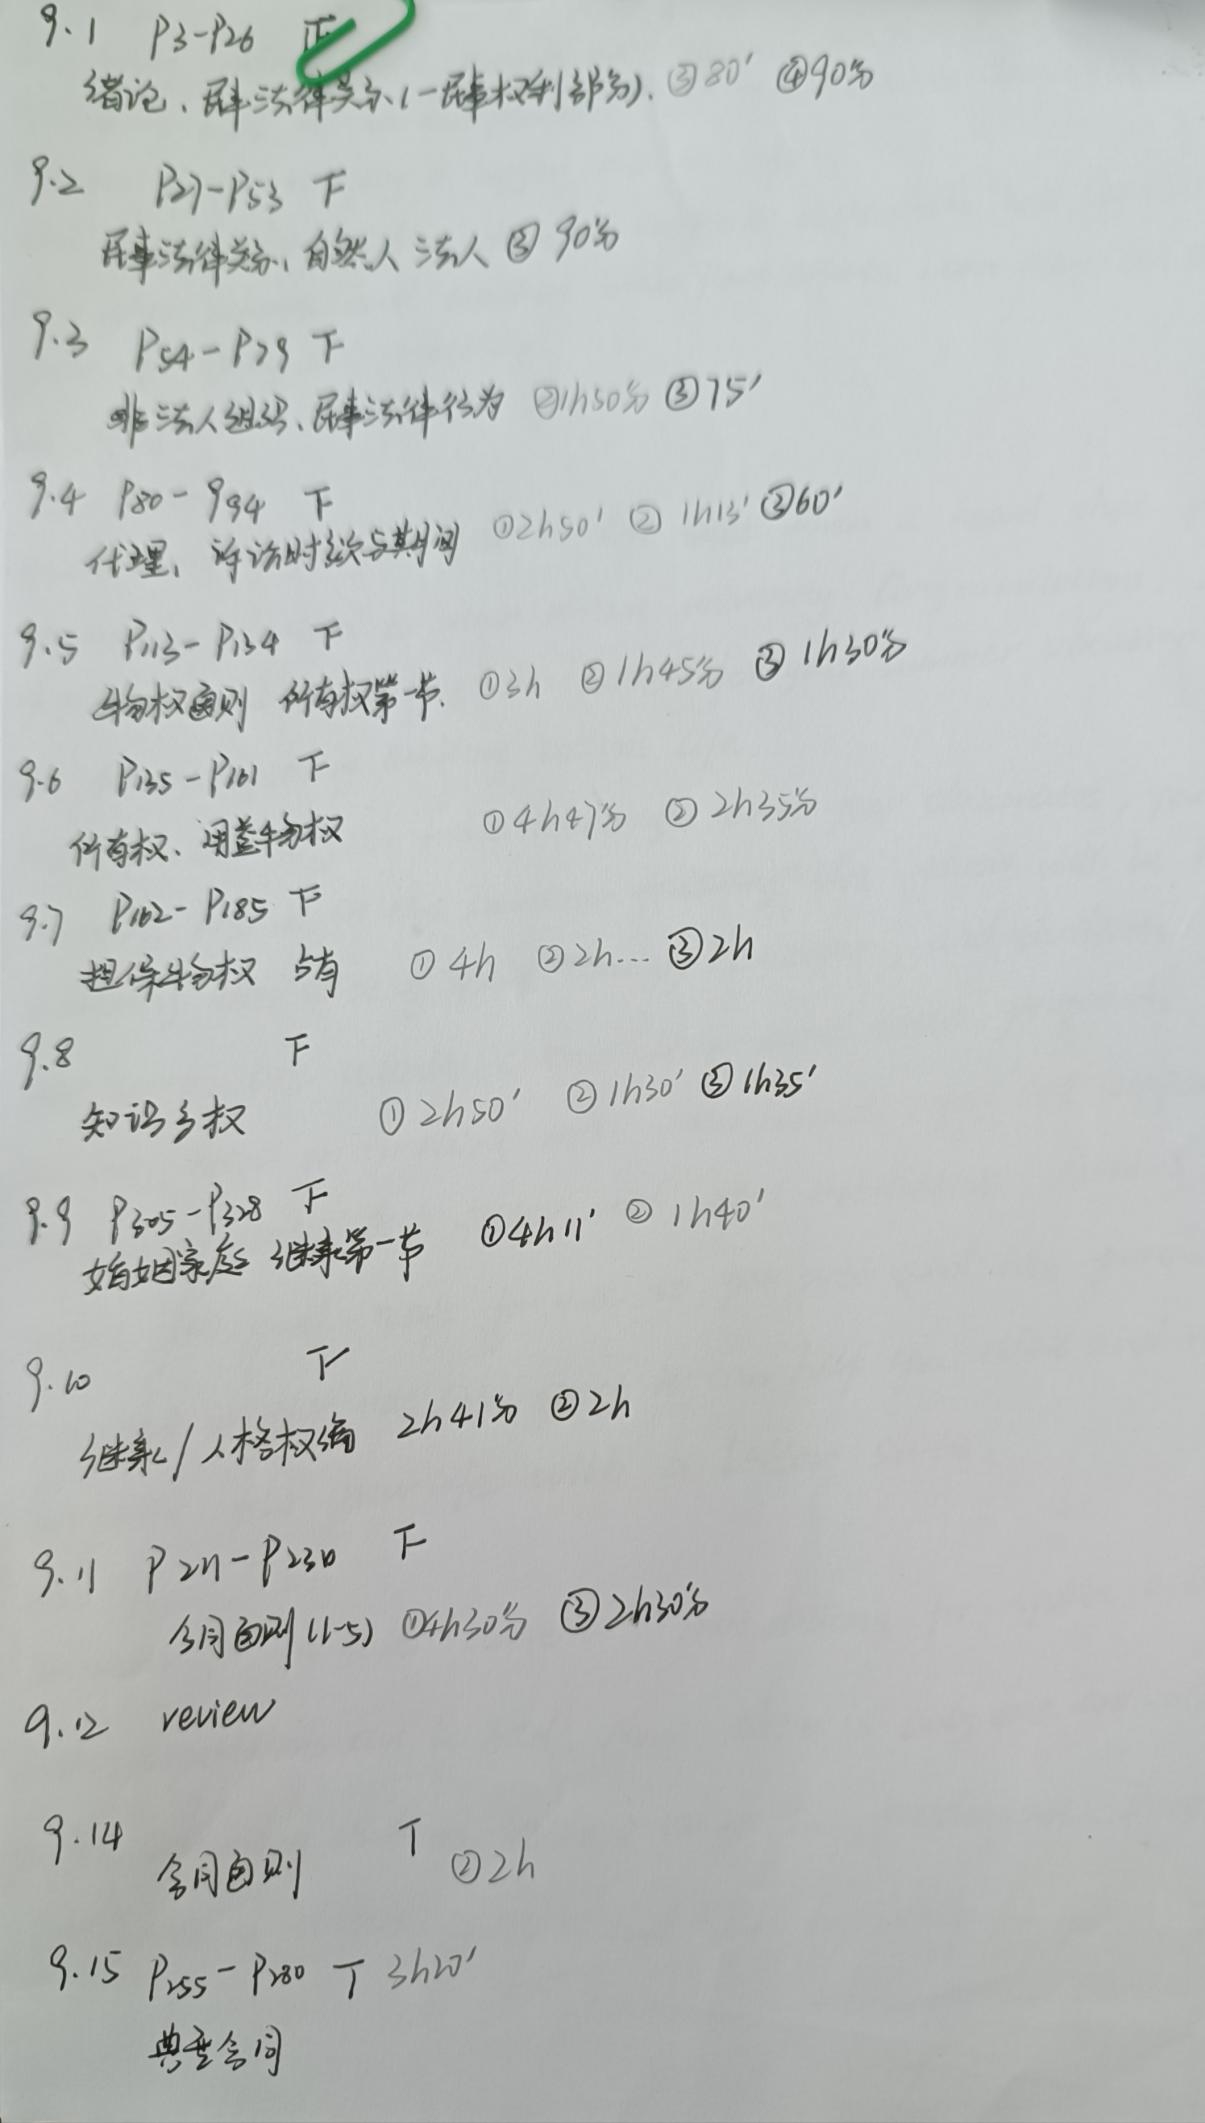 9.1 P3-P26 正
绪论、民事法律关系(一民事权利部分). ③80′ ④90分
9.2 P27-P53 下
民事法律关系、自然人 法人 ③ 90分
9.3 P54-P79 下
非法人组织、民事法律行为 ②1h50分 ③75′
9.4 P80-P94 下
代理、诉讼时效与期间 ①2h50′ ② 1h13′ ③60′
9.5 P113-P134 下
物权通则 所有权第一节. ①3h ② 1h45分 ③ 1h30分
9.6 P135-P161 下
所有权、用益物权 ①4h47分 ② 2h35分
9.7 P162-P185 下
担保物权 占有 ① 4h ② 2h... ③2h
9.8 下
知识产权 ① 2h50′ ② 1h30′ ③ 1h35′
9.9 P305-P328 下
婚姻家庭 继承第一节 ①4h11′ ② 1h40′
9.10 下
继承/人格权编 2h41分 ②2h
9.11 P211-P230 下
合同通则(1-5) ①4h30分 ③2h30分
9.12 review
9.14 T
合同通则 ②2h
9.15 P255-P280 T 3h20′
典型合同